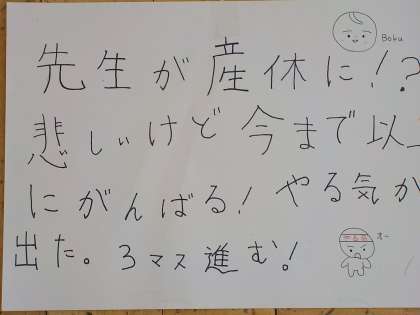 先生が産休に!?
Boku
悲しいけど今まで以上
にがんばる!やる気が
出た。3マス進む!
オー